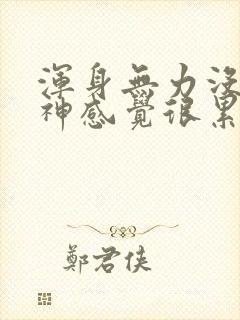 渾身無力沒
神感覺很累
鄭君俠